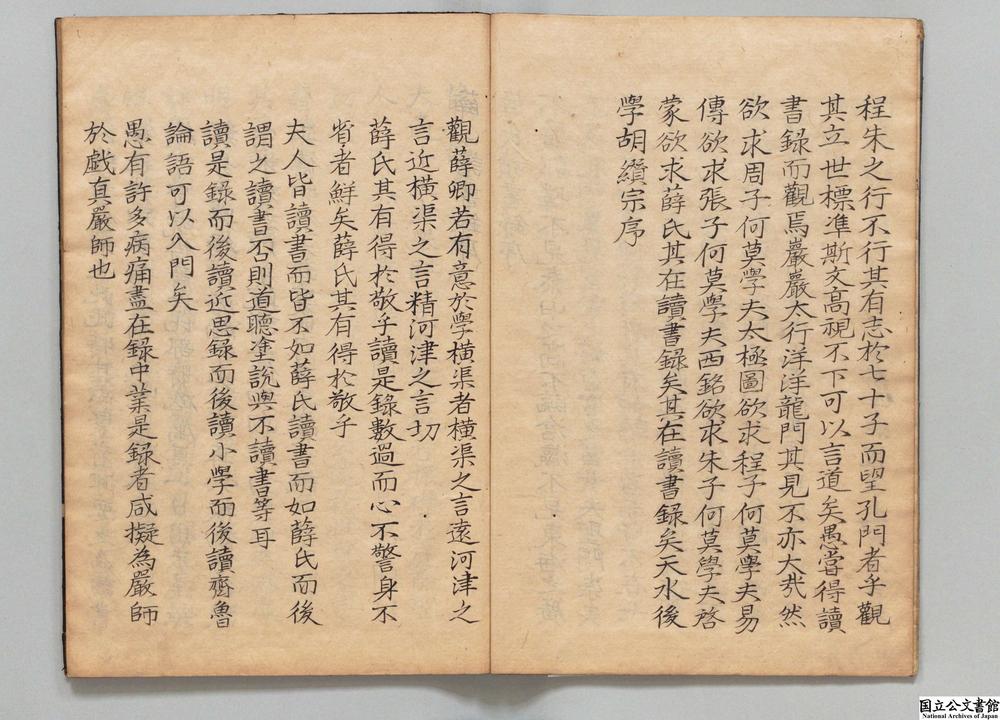 程朱之行不行其有志於七十子而望孔門者乎觀
其立世標準斯文高視不下可以言道矣愚嘗得讀
書録而觀焉巖巖太行洋洋龍門其見不亦大㦲然
欲求周子何莫學夫太極圖欲求程子何莫學夫易
傳欲求張子何莫學夫西銘欲求朱子何莫學夫啓
蒙欲求薛氏其在讀書録矣其在讀書録矣天水後
學胡纘宗序
觀薛卿若有意於學橫渠者橫渠之言遠河津之
言近橫渠之言精河津之言切
薛氏其有得於敬乎讀是録數過而心不警身不
省者鮮矣薛氏其有得於敬乎
夫人皆讀書而皆不如薛氏讀書而如薛氏而後
謂之讀書否則道聽塗說與不讀書等耳
讀是録而後讀近思録而後讀小學而後讀齊魯
論語可以入門矣
愚有許多病痛盡在録中業是録者咸擬為嚴師
於戲真嚴師也
国立公文書館
National Archives of Japan